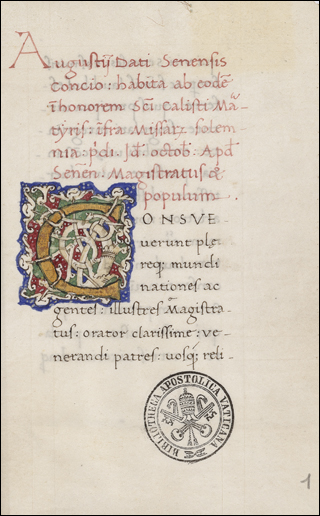 Augustij Dati Senensis
Concio: habita ab eodē
ĩ honorem Scī Calisti Ma᷈-
tyris: ĩfra Missarꝝ solem-
nia p̃di Id̃ octob̃ Apđ
Senen̄ Magistratus &
populum.
CONSVE
verunt ple
reqꝫ mundi
nationes ac
gentes: illustres Magistra-
tus: orator clarissime: ve-
nerandi patres: vosqꝫ reli-
BIBLIOTHECA APOSTOLICA VATICANA
1